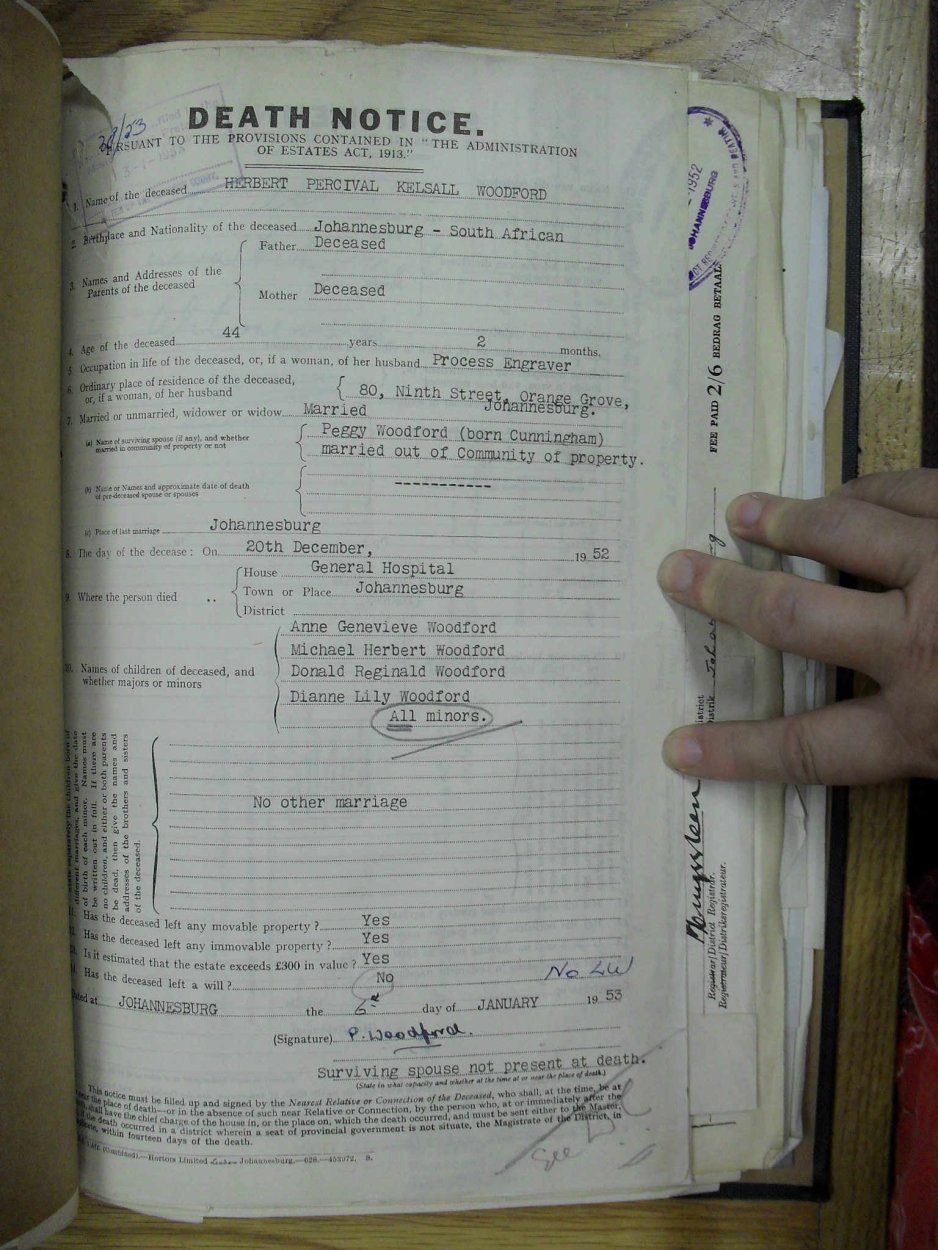 29/53
DEATH NOTICE.
PURSUANT TO THE PROVISIONS CONTAINED IN "THE ADMINISTRATION
OF ESTATES ACT, 1913."
1. Name of the deceased HERBERT PERCIVAL KELSALL WOODFORD
2. Birthplace and Nationality of the deceased Johannesburg - South African
3. Names and Addresses of the Parents of the deceased
Father Deceased
Mother Deceased
4. Age of the deceased 44 years 2 months.
5 Occupation in life of the deceased, or, if a woman, of her husband Process Engraver
6. Ordinary place of residence of the deceased,
or, if a woman, of her husband
80, Ninth Street, Orange Grove,
Johannesburg.
7. Married or unmarried, widower or widow Married
(a) Name of surviving spouse (if any), and whether
married in community of property or not
Peggy Woodford (born Cunningham)
married out of Community of property.
(b) Name or Names and approximate date of death
of pre-deceased spouse or spouses
-----------
(c) Place of last marriage Johannesburg
8. The day of the decease: On 20th December, 1952
9. Where the person died ..
House General Hospital
Town or Place Johannesburg
District
10. Names of children of deceased, and
whether majors or minors
Anne Genevieve Woodford
Michael Herbert Woodford
Donald Reginald Woodford
Dianne Lily Woodford
All minors.
different marriages, and give the date
of birth of each minor. Names must
be written out in full. If there are
no children, and either or both parents
be dead, then give the names and
addresses of the brothers and sisters
of the deceased.
No other marriage
Has the deceased left any movable property? Yes
Has the deceased left any immovable property? Yes
Is it estimated that the estate exceeds £300 in value? Yes
Has the deceased left a will? No
Dated at JOHANNESBURG the 6 day of JANUARY 1953
(Signature) P. Woodford.
Surviving spouse not present at death.
(State in what capacity and whether at the time at or near the place of death.)
This notice must be filled up and signed by the Nearest Relative or Connection of the Deceased, who shall, at the time, be at
near the place of death—or in the absence of such near Relative or Connection, by the person who, at or immediately after the
shall have the chief charge of the house in, or the place on, which the death occurred, and must be sent either to the Master,
the death occurred in a district wherein a seat of provincial government is not situate, the Magistrate of the District, in
within fourteen days of the death.
Hortors Limited Johannesburg.—628.—453972. B.
See
1952
JOHANNESBURG
FEE PAID 2/6 BEDRAG BETAAL
Registrar/District Registrar.
Registrateur/Distriksregistrateur.